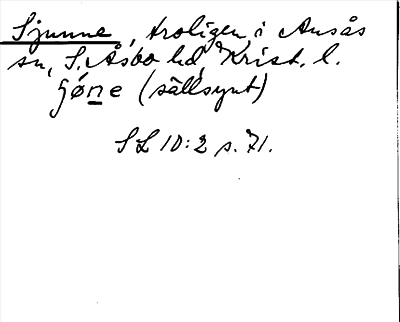 Sjunne, troligen i Ausås
sn, S. Åsbo hd, Krist. l.
ʃǿne (sällsynt)
SL 10:2 s. 71.